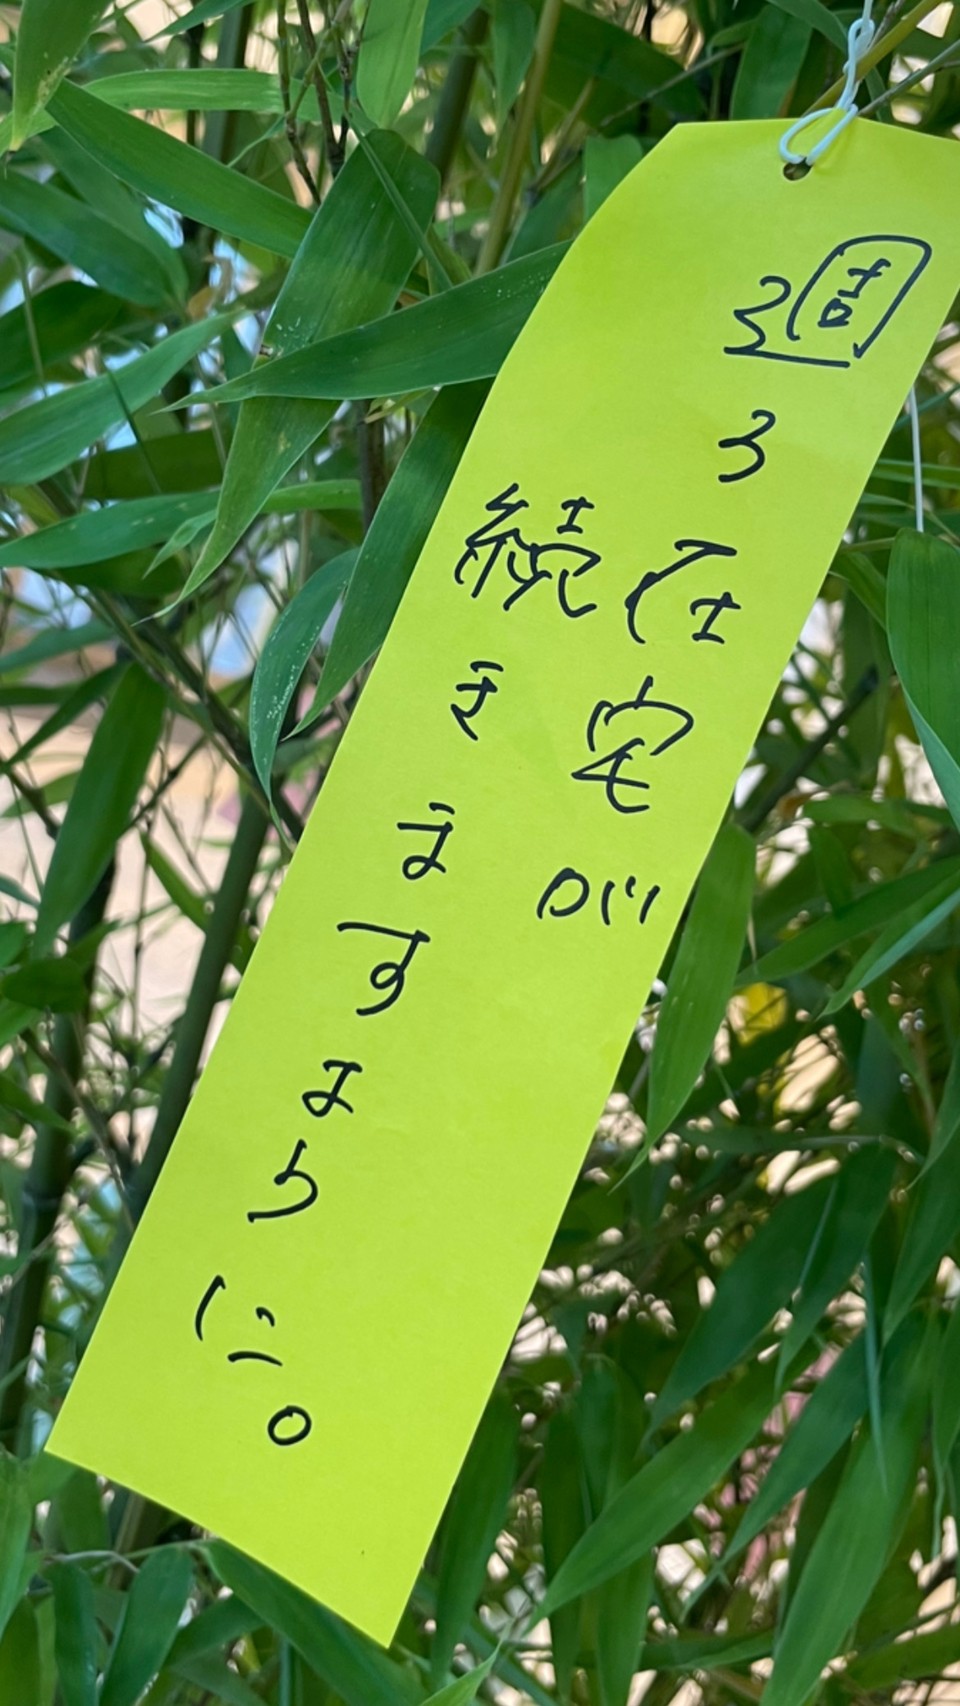 週3在宅が
続きますように。